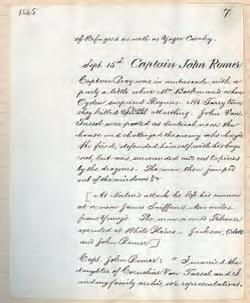 1845
7.
of Refugees as well as Yager Cavalry.
Sept. 15th Captain John Romer
Captain was in ambuscade with a
party a little above Mr. when
Ogden surprised Rogains. At Tarry town
they killed Mathing. John Van
Tassel was posted as sentinel in the
house and challenged the enemy who
He fired, defended himself with his bayo-
net, but was surrounded and cut to pieces
by the dragoons. The men then jumped
out of the windows &c
[At attack he left his
at now James Sniffen's two miles
from Young's. The men
executed at White Plains. Jackson, Odell
and John Romer]
Capt. John Romer: "I married the
daughter of Cornelius Van Tassel and I
and my family are his representatives.